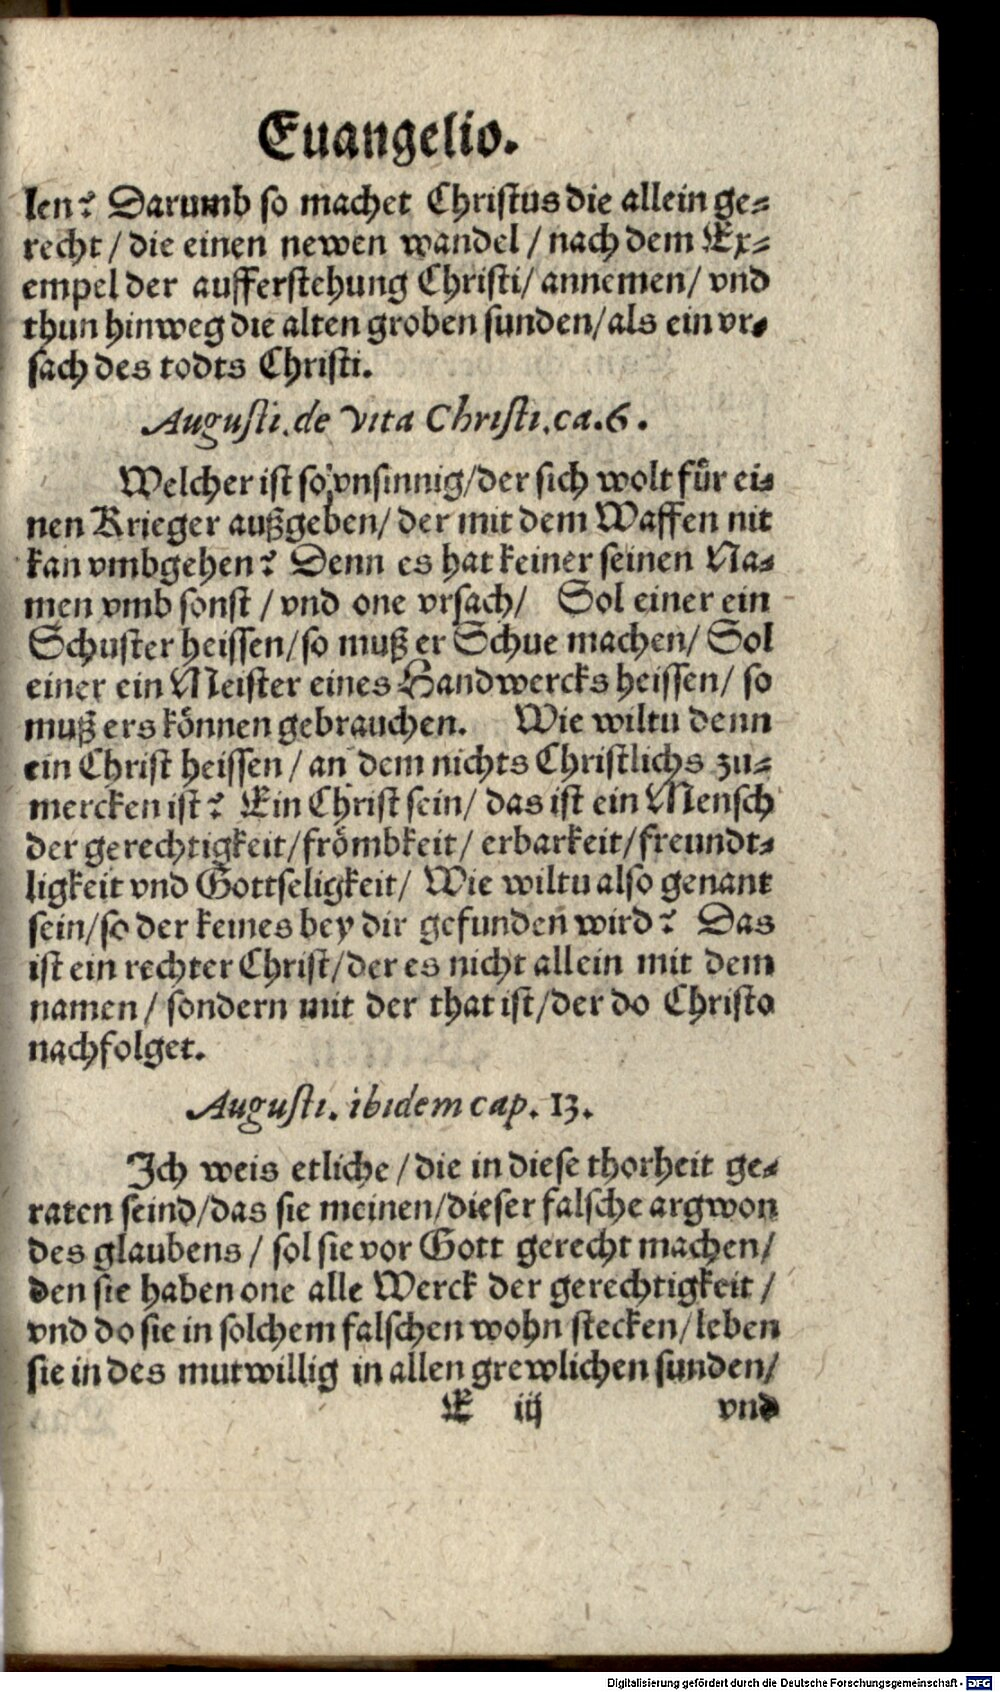 Euangelio.
len? Darumb so machet Christus die allein ge-
recht / die einen newen wandel / nach dem Ex-
empel der aufferstehung Christi / annemen / vnd
thun hinweg die alten groben sunden / als ein vr-
sach des todts Christi.
Augusti. de vita Christi. ca. 6.
Welcher ist so vnsinnig / der sich wolt für ei-
nen Krieger außgeben / der mit dem Waffen nit
kan vmbgehen? Denn es hat keiner seinen Na-
men vmb sonst / vnd one vrsach / Sol einer ein
Schuster heissen / so muß er Schue machen / Sol
einer ein Meister eines Handwercks heissen / so
muß ers können gebrauchen. Wie wiltu denn
ein Christ heissen / an dem nichts Christlichs zu-
mercken ist? Ein Christ sein / das ist ein Mensch
der gerechtigkeit / frömbkeit / erbarkeit / freundt-
ligkeit vnd Gottseligkeit / Wie wiltu also genant
sein / so der keines bey dir gefunden wird? Das
ist ein rechter Christ / der es nicht allein mit dem
namen / sondern mit der that ist / der do Christo
nachfolget.
Augusti. ibidem cap. 13.
Ich weis etliche / die in diese thorheit ge-
raten seind / das sie meinen / dieser falsche argwon
des glaubens / sol sie vor Gott gerecht machen /
den sie haben one alle Werck der gerechtigkeit /
vnd do sie in solchem falschen wohn stecken / leben
sie in des mutwillig in allen grewlichen sunden /
E iij vnd
Digitalisierung gefördert durch die Deutsche Forschungsgemeinschaft - DFG